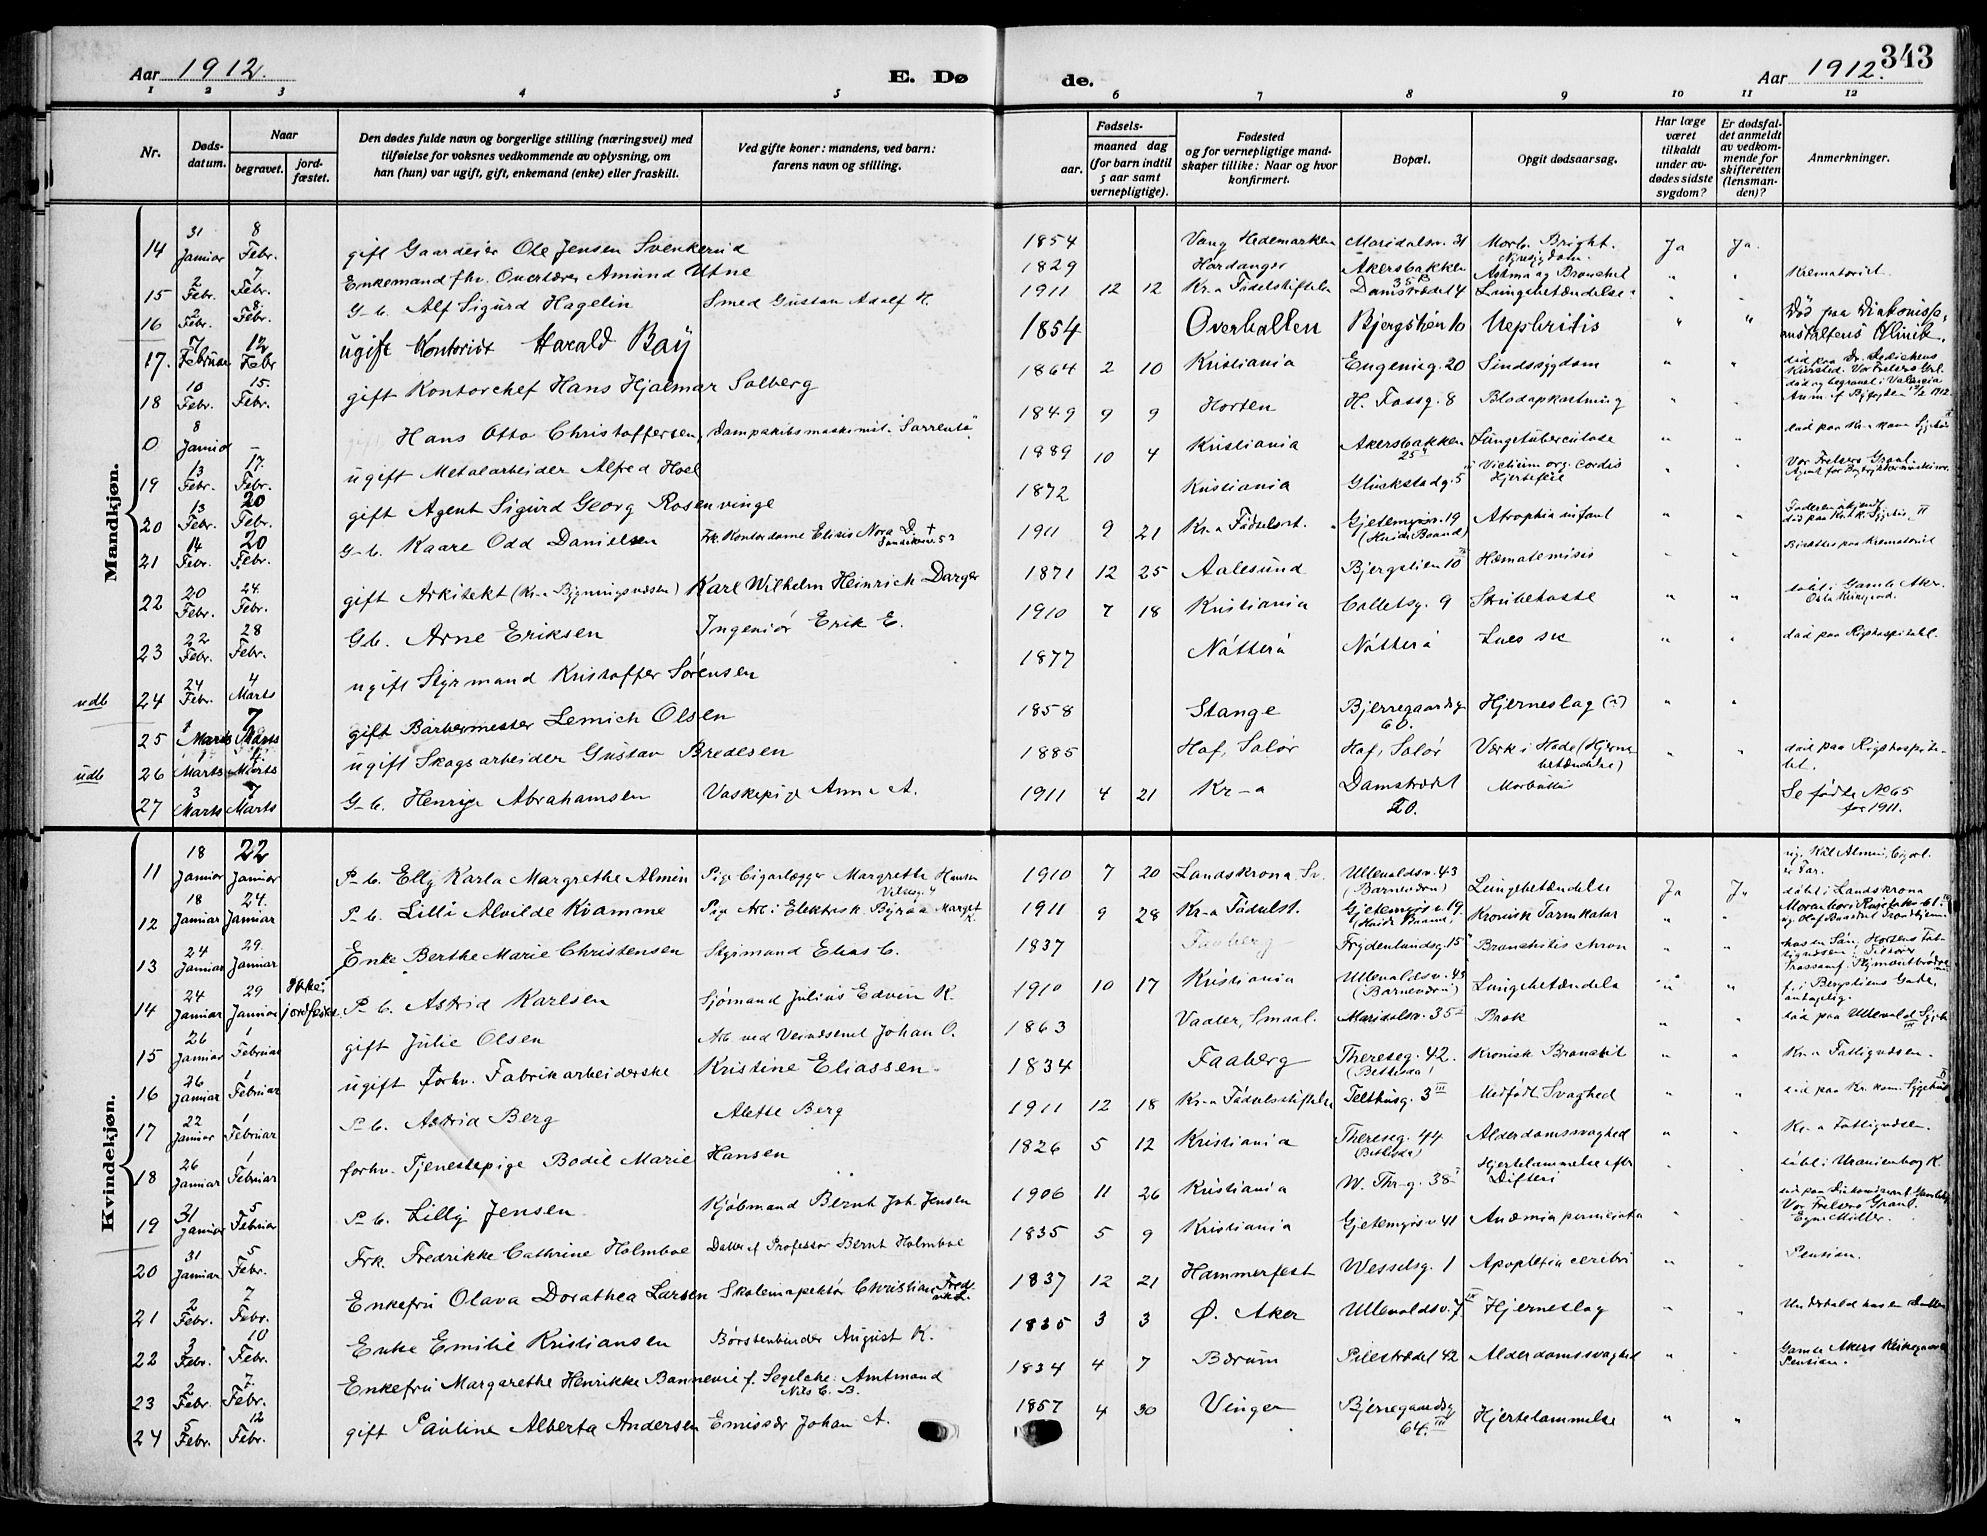 Aar 1912.
E. Dø
de.
Aar 1912.
343
1 2 3 4 5 6 7 8 9 10 11 12
Nr.
Døds-
datum.
Naar
begravet.
jord-
fæstet.
Den dødes fulde navn og borgerlige stilling (næringsvei) med
tilføielse for voksnes vedkommende av oplysning, om
han (hun) var ugift, gift, enkemand (enke) eller fraskilt.
Ved gifte koner: mandens, ved barn:
farens navn og stilling.
Fødsels-
aar.
maaned dag
(for barn indtil
5 aar samt
vernepligtige).
Fødested
og for vernepligtige mand-
skaper tillike: Naar og hvor
konfirmert.
Bopæl.
Opgit dødsaarsag.
Har læge
været
tilkaldt
under av-
dødes sidste
sygdom?
Er dødsfal-
det anmeldt
av vedkom-
mende for
skifteretten
(lensman-
den)?
Anmerkninger.
Mandkjøn.
14 31 Januar 8 Febr. gift Gaardeier Ole Jensen Svenkerud 1854 Vang Hedemarken Maridalsv. 31 Morb. Bright. Ja Ja.
15 2 Febr. 7 Febr. Enkemand fhv. Overlærer Amund Utne 1829 Hardanger Akersbakken Astma og Bronchit " " Krematoriet.
16 2 Febr. 8 Febr. G-b. Alf Sigurd Hagelin Smed Gustav Adolf H. 1911 12 12 Kr-a Fødselsstiftelse Damstrædet 4 Lungebetændelse
17. 7 Februar 12 Febr ugift Kontorist Harald Bay 1854 Overhallen Bjergstien 10 Nephritis " " Død paa Diakonisse
anstaltens Klinik.
18 10 Febr. 15. Febr. gift Kontorchef Hans Hjalmar Solberg 1864 2 10 Kristiania Eugenieg. 20 Sindssygdom " "
0 8 Januar – Hans Otto Christoffersen, Dampskibsmaskinist "Sorrento" 1849 9 9 Horten H. Fossg. 8 Blodopkastning " " død og begravet i Valencia
19 13 Febr. 17. Febr. ugift Metalarbeider Alfred Hoel 1889 10 4 Kristiania Akersbakken 25 Lungetuberculose " "
20 13 Febr. 20 Febr. gift Agent Sigurd Georg Rosenvinge 1872 Kristiania Glückstadg. 5 Vitium org. cordis
Hjertefeil " " Vor Frelsers Gravl.
21 14 Febr. 20 Febr. G-b. Kaare Odd Danielsen Frk. Kontordame Elisis Nora D. 1911 9 21 Kr-a Fødselsst. Gjetemyrsv. 19 Atrophia infant " "
22 20 Febr. 24. Febr. gift Arkitekt (Kr-a Bygningsvæsen) Karl Wilhelm Heinrich Darger 1871 12 25 Aalesund Bjergstien 10 Hæmatemisis Bisættes paa Krematoriet
23 22 Febr. 28 Febr. G-b. Arne Eriksen Ingeniør Erik E. 1910 7 18 Kristiania Colletsg. 9 Strubehoste " " døbt i Gamle Aker.
udb 24 24 Febr. 4 Marts ugift Styrmand Kristoffer Sørensen 1877 Nøtterø Nøtterø Lues " " død paa Rigshospitalet.
25 1 Marts 7 Marts gift Barbermester Lemich Olsen 1858 Stange Bjerregaardsg
60. Hjerneslag (?) " "
udb 26 1 Marts 4. Marts ugift Skogsarbeider Gustav Bredesen 1885 Hof, Solør Hof, Solør Værk i Hode (Hjerne
betændelse) " " død paa Rigshospita-
let.
27 3 Marts 7 Marts G-b. Henrige Abrahamsen Vaskepige Anna A. 1911 4 21 Kr-a Damstrædet
20. Morbilli Se fødte No 65
for 1911.
Kvindekjøn.
11 18 Januar 22 Januar P-b. Elly Karla Margrethe Almin Pige Cigarlægger Margrethe Hansen 1910 7 20 Landskrona Sv. Ullevoldsv. 43
(Barnevern) Lungebetændelse Ja Ja døbt i Landskrona
12 18 Januar 24. Januar P-b. Lilli Alvilde Kvamme Pige Arb. i Elektrisk Byraa Margit K. 1911 9 28 Kr-a Fødselst. Gjetemyrsv. 19. Kronisk Tarmkatar " "
13 24 Januar 29. Januar Enke Berthe Marie Christensen Styrmand Elias C. 1837 Faaberg Frydenlundsg. 15 Bronchitis chron " "
14 24 Januar 29 Januar Ikke
jordfæstet. P-b. Astrid Karlsen Sjømand Julius Edvin K. 1910 10 17 Kristiania Ullevoldsv. 43
(Barnevern) Lungebetændelse " "
15 26 Januar 1 Februar gift Julie Olsen Arb ved Veivæsenet Johan O. 1863 Vaaler, Smaal. Maridalsv. 35 Brok " " død paa Ullevold Sygeh.
16 26 Januar 1 Februar ugift forhv. Fabrikarbeiderske Kristine Eliassen 1834 Faaberg Thereseg. 42.
(Bethesda) Kronisk Bronchit " " Kr-a Fattigvæsen.
17 22 Januar 1 Februar P-b. Astrid Berg Alette Berg 1911 12 18 Kr-a Fødselsstiftelse Telthusg. 3 III Medfødt Svaghed " " død paa Kr. kom. Sygehus
18 26 Januar 1 Februar forhv. Tjenestepige Bodil Marie Hansen 1826 5 12 Kristiania Thereseg. 44
(Bethesda) Alderdomssvaghed " " Kr-a Fattigvæsen.
19 31 Januar 5 Februar P-b. Lilly Jensen Kjøbmand Bernt Joh. Jensen 1906 11 26 Kristiania W. Thr-g. 38 Hjertelammelse efter
Difteri døbt i Uranienborg K.
20 31 Januar 5 Febr. Frk. Fredrikke Cathrine Holmboe Datter af Professor Bernt Holmboe 1835 5 9 Kristiania Gjetemyrsv 41 Anæmia perniciosa Vor Frelsers Gravl.
21 2 Febr. 7 Febr. Enkefru Olava Dorathea Larsen Skoleinspektør Christian Fredrik L. 1837 12 21 Hammerfest Wesselsg. 1 Apoplexia cerebri " " Pension.
22 3 Febr. 10 Febr. Enke Emilie Kristiansen Børstenbinder August K. 1835 3 3 Ø. Aker Ullevoldsv. 7 IV Hjerneslag " "
23 2 Febr. 7. Febr. Enkefru Margarethe Henrikke Bannevie f. Segelcke Amtmand
Nils C. B. 1834 4 7 Bærum Pilestrædet 42 Alderdomssvaghed " " Gamle Akers Kirkegaard
Pension.
24 5 Febr. 12 Febr. gift Pauline Alberta Andersen Emissær Johan A. 1857 4 30 Vinger Bjerregaardsg
64. III Hjertelammelse " "